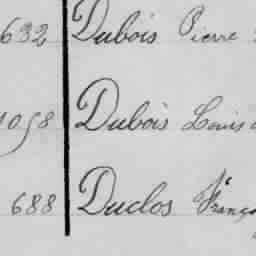 632 Dubois Pierre
1058 Dubois Louis
688 Duclos Franço